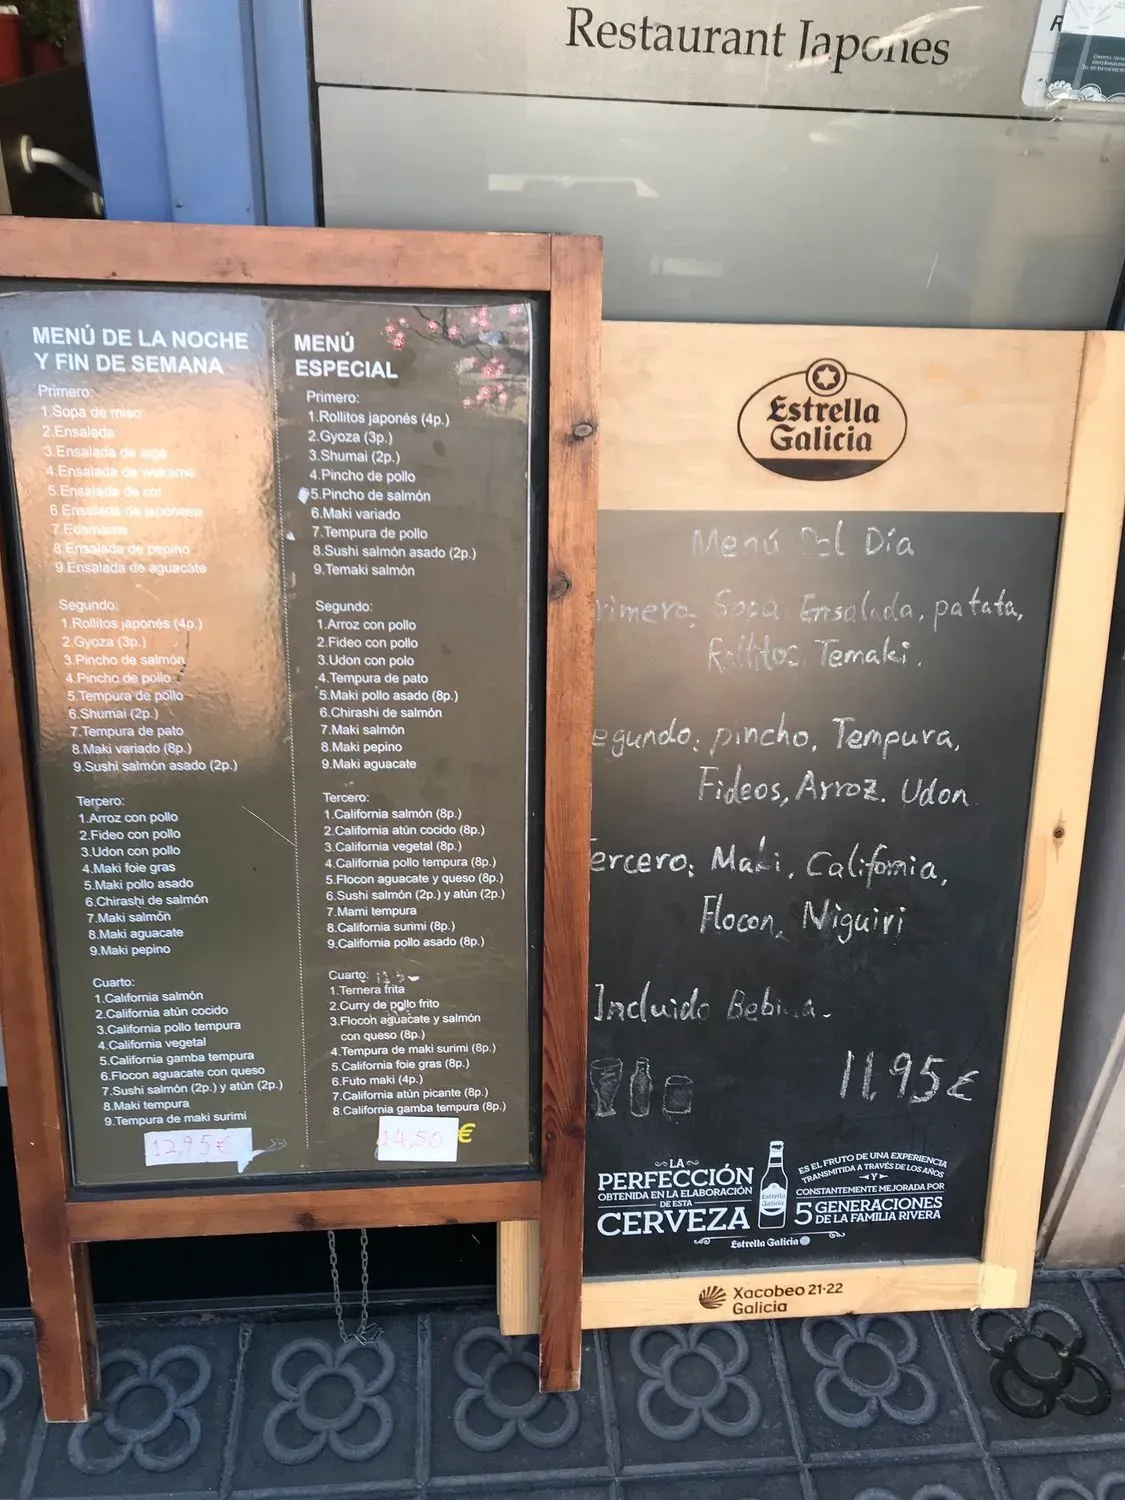 Restaurant Japones
MENÚ DE LA NOCHE
Y FIN DE SEMANA
Primero:
1.Sopa de miso
2.Ensalada
3.Ensalada de alga
4.Ensalada de wakame
5.Ensalada de col
6.Ensalada de japonesa
7.Edamame
8.Ensalada de pepino
9.Ensalada de aguacate
Segundo:
1.Rollitos japonés (4p.)
2.Gyoza (3p.)
3.Pincho de salmón
4.Pincho de pollo
5.Tempura de pollo
6.Shumai (2p.)
7.Tempura de pato
8.Maki variado (8p.)
9.Sushi salmón asado (2p.)
Tercero:
1.Arroz con pollo
2.Fideo con pollo
3.Udon con pollo
4.Maki foie gras
5.Maki pollo asado
6.Chirashi de salmón
7.Maki salmón
8.Maki aguacate
9.Maki pepino
Cuarto:
1.California salmón
2.California atún cocido
3.California pollo tempura
4.California vegetal
5.California gamba tempura
6.Flocon aguacate con queso
7.Sushi salmón (2p.) y atún (2p.)
8.Maki tempura
9.Tempura de maki surimi
12,95€
MENÚ
ESPECIAL
Primero:
1.Rollitos japonés (4p.)
2.Gyoza (3p.)
3.Shumai (2p.)
4.Pincho de pollo
5.Pincho de salmón
6.Maki variado
7.Tempura de pollo
8.Sushi salmón asado (2p.)
9.Temaki salmón
Segundo:
1.Arroz con pollo
2.Fideo con pollo
3.Udon con polo
4.Tempura de pato
5.Maki pollo asado (8p.)
6.Chirashi de salmón
7.Maki salmón
8.Maki pepino
9.Maki aguacate
Tercero:
1.California salmón (8p.)
2.California atún cocido (8p.)
3.California vegetal (8p.)
4.California pollo tempura (8p.)
5.Flocon aguacate y queso (8p.)
6.Sushi salmón (2p.) y atún (2p.)
7.Mami tempura
8.California surimi (8p.)
9.California pollo asado (8p.)
Cuarto:
1.Ternera frita
2.Curry de pollo frito
3.Flocon aguacate y salmón
con queso (8p.)
4.Tempura de maki surimi (8p.)
5.California foie gras (8p.)
6.Futo maki (4p.)
7.California atún picante (8p.)
8.California gamba tempura (8p.)
14,50 €
Estrella
Galicia
Menú Del Día
rimero: Sopa. Ensalada, patata,
Rollitos. Temaki.
egundo: pincho, Tempura,
Fideos, Arroz. Udon
ercero: Maki, California,
Flocon, Niguiri
Incluido Bebida.
11,95€
LA
PERFECCIÓN
OBTENIDA EN LA ELABORACIÓN
DE ESTA
CERVEZA
Estrella
Galicia
ES EL FRUTO DE UNA EXPERIENCIA
TRANSMITIDA A TRAVÉS DE LOS AÑOS
Y
CONSTANTEMENTE MEJORADA POR
5 GENERACIONES
DE LA FAMILIA RIVERA
Estrella Galicia
Xacobeo 21·22
Galicia